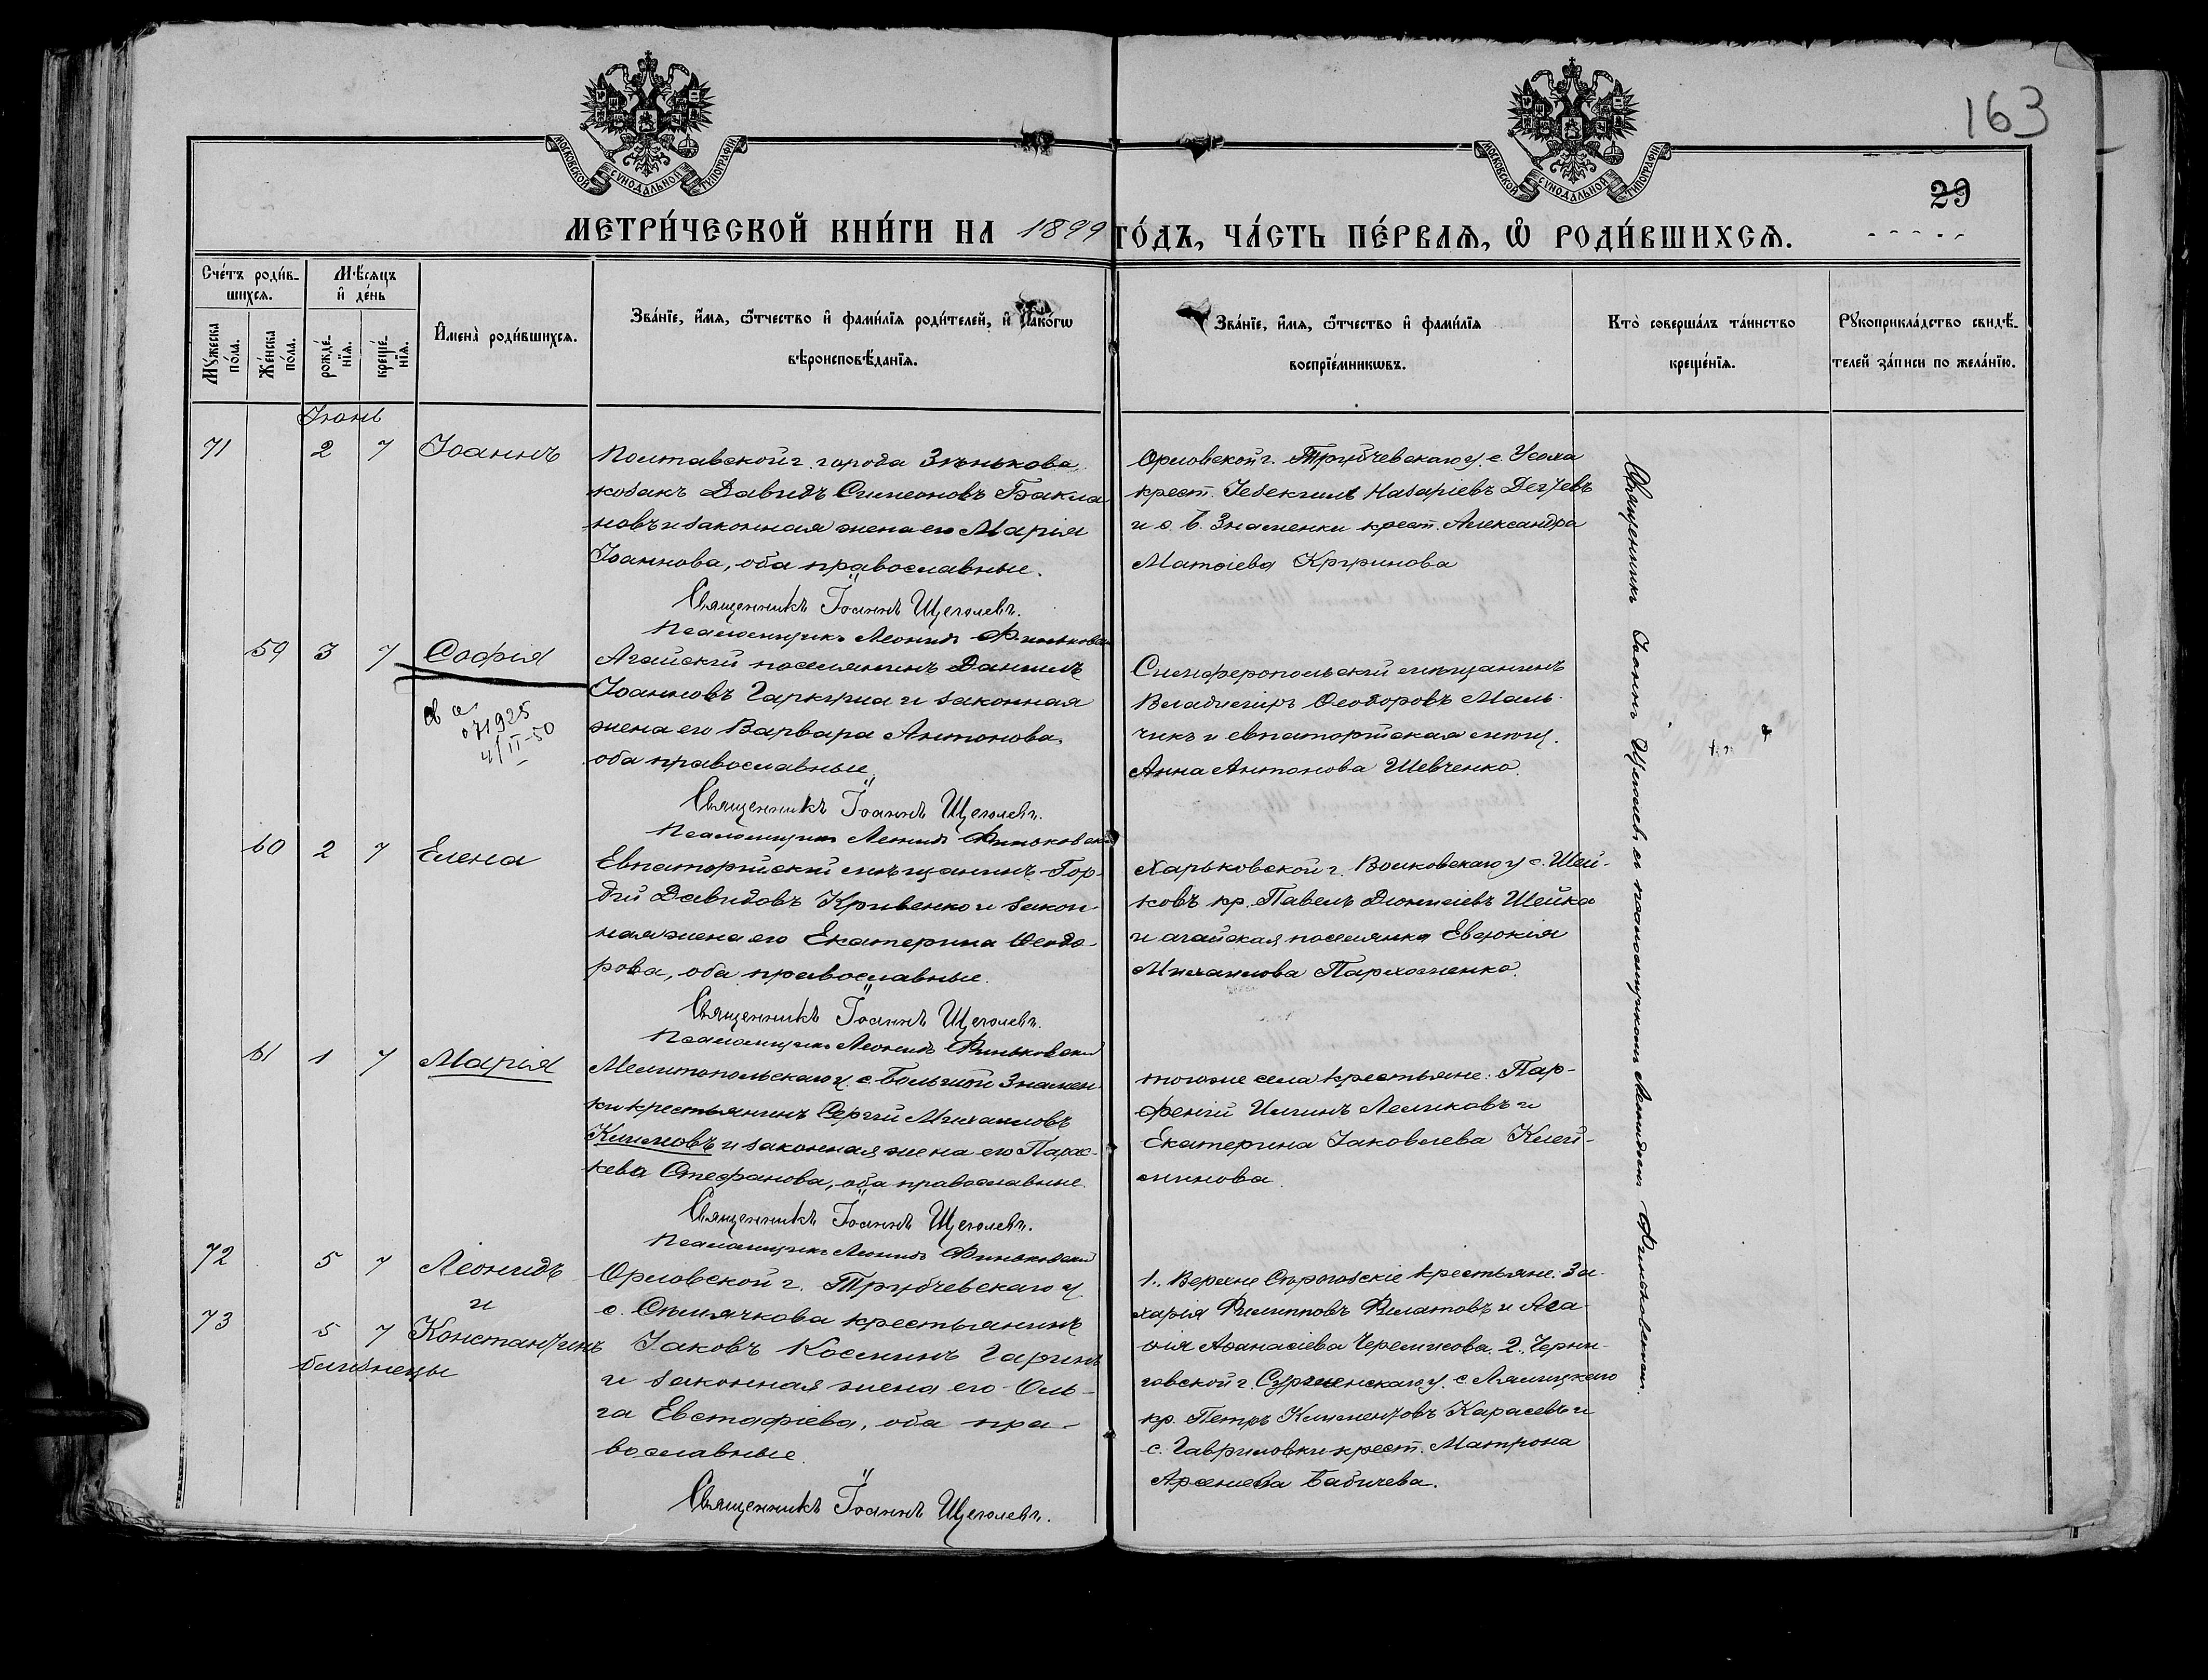 163
29
МОСКОВСКОЙ СѴНОДАЛЬНОЙ ТИПОГРАФІИ
МОСКОВСКОЙ СѴНОДАЛЬНОЙ ТИПОГРАФІИ
МЕТРИ́ЧЕСКОЙ КНИ́ГИ НА 1899 ГО́ДЪ, ЧА́СТЬ ПЕ́РВАѦ, Ѡ РОДИ́ВШИХСѦ.
Сче́тъ роди́в-
шихсѧ.
Мѣ́сѧцъ
и҆ де́нь
Мꙋ́жеска по́ла.
Же́нска по́ла.
рожде́-нїѧ.
креще́-нїѧ.
И҆мена̀ роди́вшихсѧ.
Зва́нїе, и҆́мѧ, ѻ҆́тчество и҆ фами́лїѧ роди́телей, и҆ како́гѡ
вѣроисповѣ́данїѧ.
Зва́нїе, и҆́мѧ, ѻ҆́тчество и҆ фами́лїѧ
воспрїе́мникѡвъ.
Кто̀ соверша́лъ та́инство
креще́нїѧ.
Рꙋкоприкла́дство свидѣ́-
телей за́писи по жела́нїю.
Іюнь
71 2 7 Іоаннъ
Полтавской г. города Зѣнькова
козакъ Давидъ Симеоновъ Бакла
новъ и законная жена его Марія
Іоаннова, оба православные.
Священникъ Іоаннъ Щеголевъ.
Псаломщикъ Леонидъ Финьковск
Орловской г. Трубчевскаго у. с. Усоха
крест. Іезекіилъ Назаріевъ Дегтевъ
и с. Б. Знаменки крест. Александра
Матѳіева Куринова
59 3 7 Софія
071925
4/II-50
Агайскій поселянинъ Даніилъ
Іоанновъ Гаркуша и законная
жена его Варвара Антонова,
оба православные
Священникъ Іоаннъ Щеголевъ.
Псаломщикъ Леонидъ Финьковскі
Симферопольскій мѣщанинъ
Владиміръ Ѳеодоровъ Маль-
чикъ и евпаторійская мѣщ.
Анна Антонова Шевченко.
60 2 7 Елена
Евпаторійскій мѣщанинъ Гор-
дій Давидовъ Кривенко и закон-
ная жена его Екатерина Ѳеодо-
рова, оба православные.
Священникъ Іоаннъ Щеголевъ.
Псаломщикъ Леонидъ Финьковскій
Харьковской г. Волковскаго у. с. Шей-
ковъ кр. Павелъ Діонисіевъ Шейка
и агайская поселянка Евдокія
Михаилова Пархоменко.
61 1 7 Марія
Мелитопольскаго у. с. Большой Знамен-
ки крестьянинъ Сергій Михаиловъ
Климовъ и законная жена его Парас-
кева Стефанова, оба православные.
Священникъ Іоаннъ Щеголевъ.
Псаломщикъ Леонидъ Финьковскій
тогоже села крестьяне: Пар-
ѳеній Иліинъ Лемиковъ и
Екатерина Іаковлева Клей-
минова.
72 5 7 Леонидъ
и
73 5 7 Константинъ
близнецы
Орловской г. Трубчевскаго у.
с. Сѣмячкова крестьянинъ
Іаковъ Косминъ Гаринъ
и законная жена его Оль-
га Евстафіева, оба пра-
вославные.
Священникъ Іоаннъ Щеголевъ.
1., Верхне Сѣрогозскіе крестьяне: За-
харія Филипповъ Филатовъ и Ага-
ѳія Аѳанасіева Черемисова. 2., Черни-
говской г. Суражскаго у. с. Лялицкаго
кр. Петръ Климентовъ Карасевъ и
с. Гавриловки крест. Матрона
Арсеніева Бабичева.
Священникъ Іоаннъ Щеголевъ съ псаломщикомъ Леонидомъ Финьковскимъ.